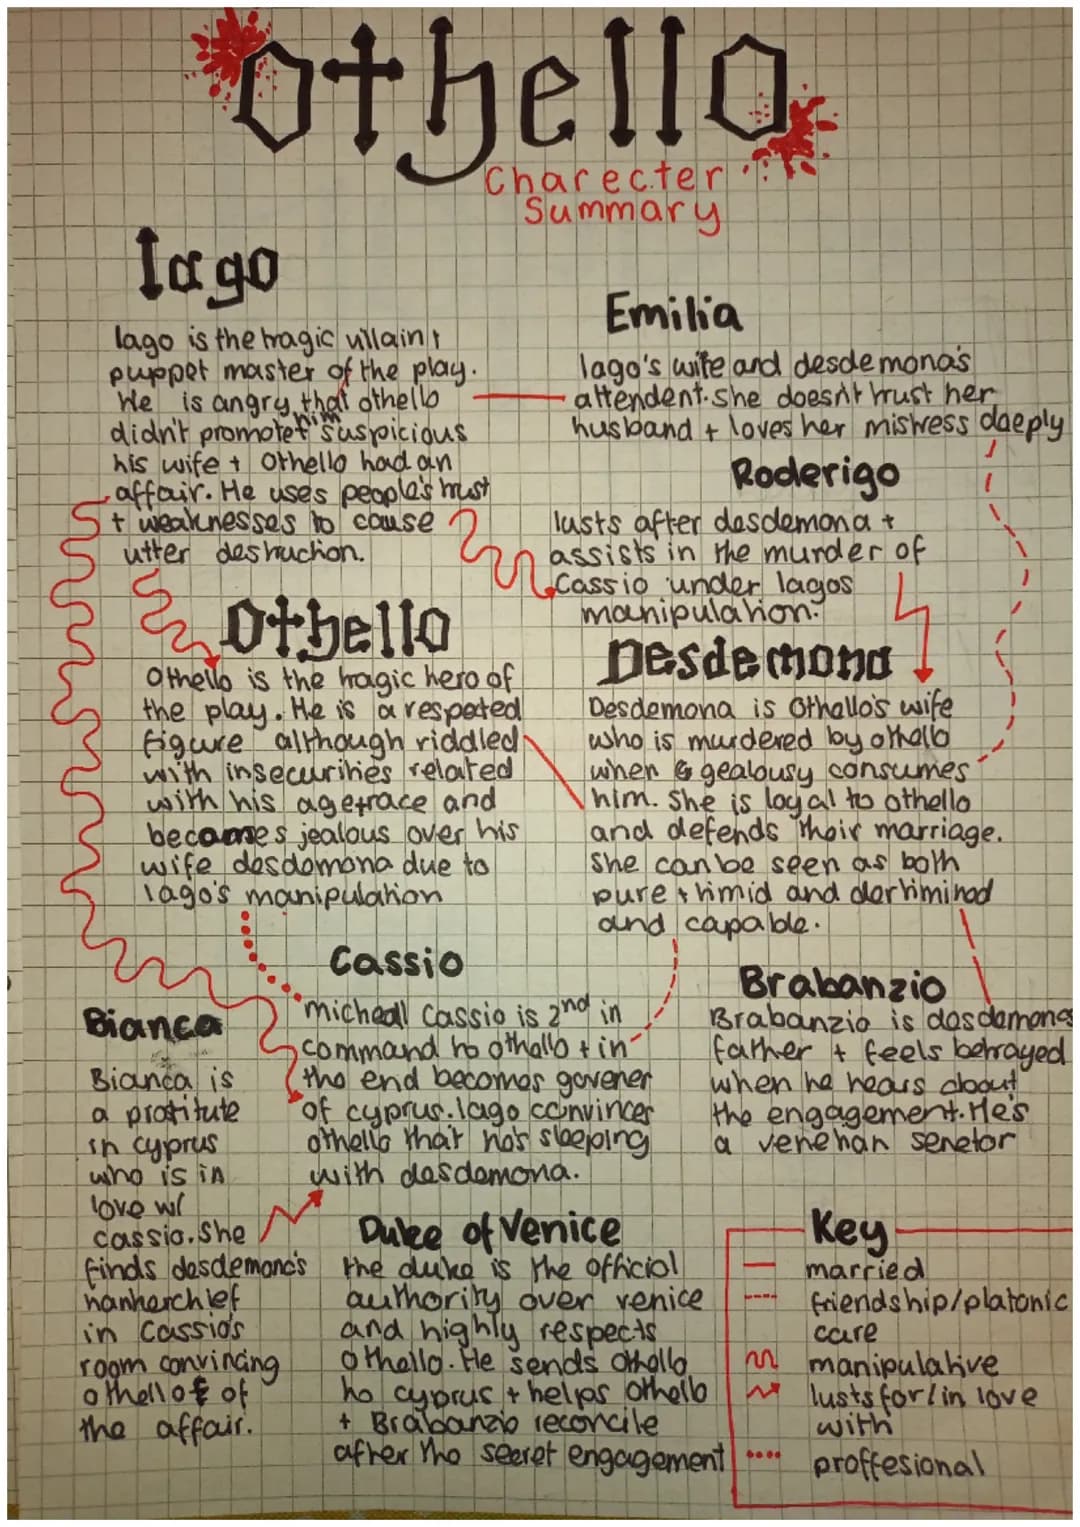 Othello
Charecter
Summary
Iago
Iago is the tragic villain +
puppet master of the play.
He is angry that othello
didn't promote him + suspicious
his wife + Othello had an
affair. He uses people's trust
+ weaknesses to cause
utter destruction.
Emilia
Iago's wife and desdemona's
attendent. She doesn't trust her
husband + loves her mistress daeply
Roderigo
lusts after desdemona +
assists in the murder of
Cassio under Iagos
manipulation.
Othello
Othello is the tragic hero of
the play. He is a respeted
figure although riddled
with insecurities related
with his age + race and
becomes jealous over his
wife desdemona due to
Iago's manipulation
Desdemona
Desdemona is Othello's wife
who is murdered by othello
when gealousy consumes
him. She is loyal to othello
and defends their marriage.
She can be seen as both
pure + timid and dertimined
and capable.
Cassio
micheal Cassio is 2nd in
command to othello + in
the end becomes govener
of cyprus. Iago convinces
othello that he's sleeping
with desdemona.
Brabanzio
Brabanzio is desdemonas
father + feels betrayed
when he hears about
the engagement. He's
a venetian senetor
Bianca
Bianca is
a protitute
in cyprus
who is in
love w/
cassio. She
finds desdemona's
hanherchief
in Cassio's
room convincing
othello of
the affair.
Duke of Venice
the duke is the official
authority over venice
and highly respects
othello. He sends Othello
to cyprus + helps Othello
+ Brabanzio reconcile
after the secret engagement
Key
married
friendship/platonic
care
manipulative
lusts for/in love
with
proffesional